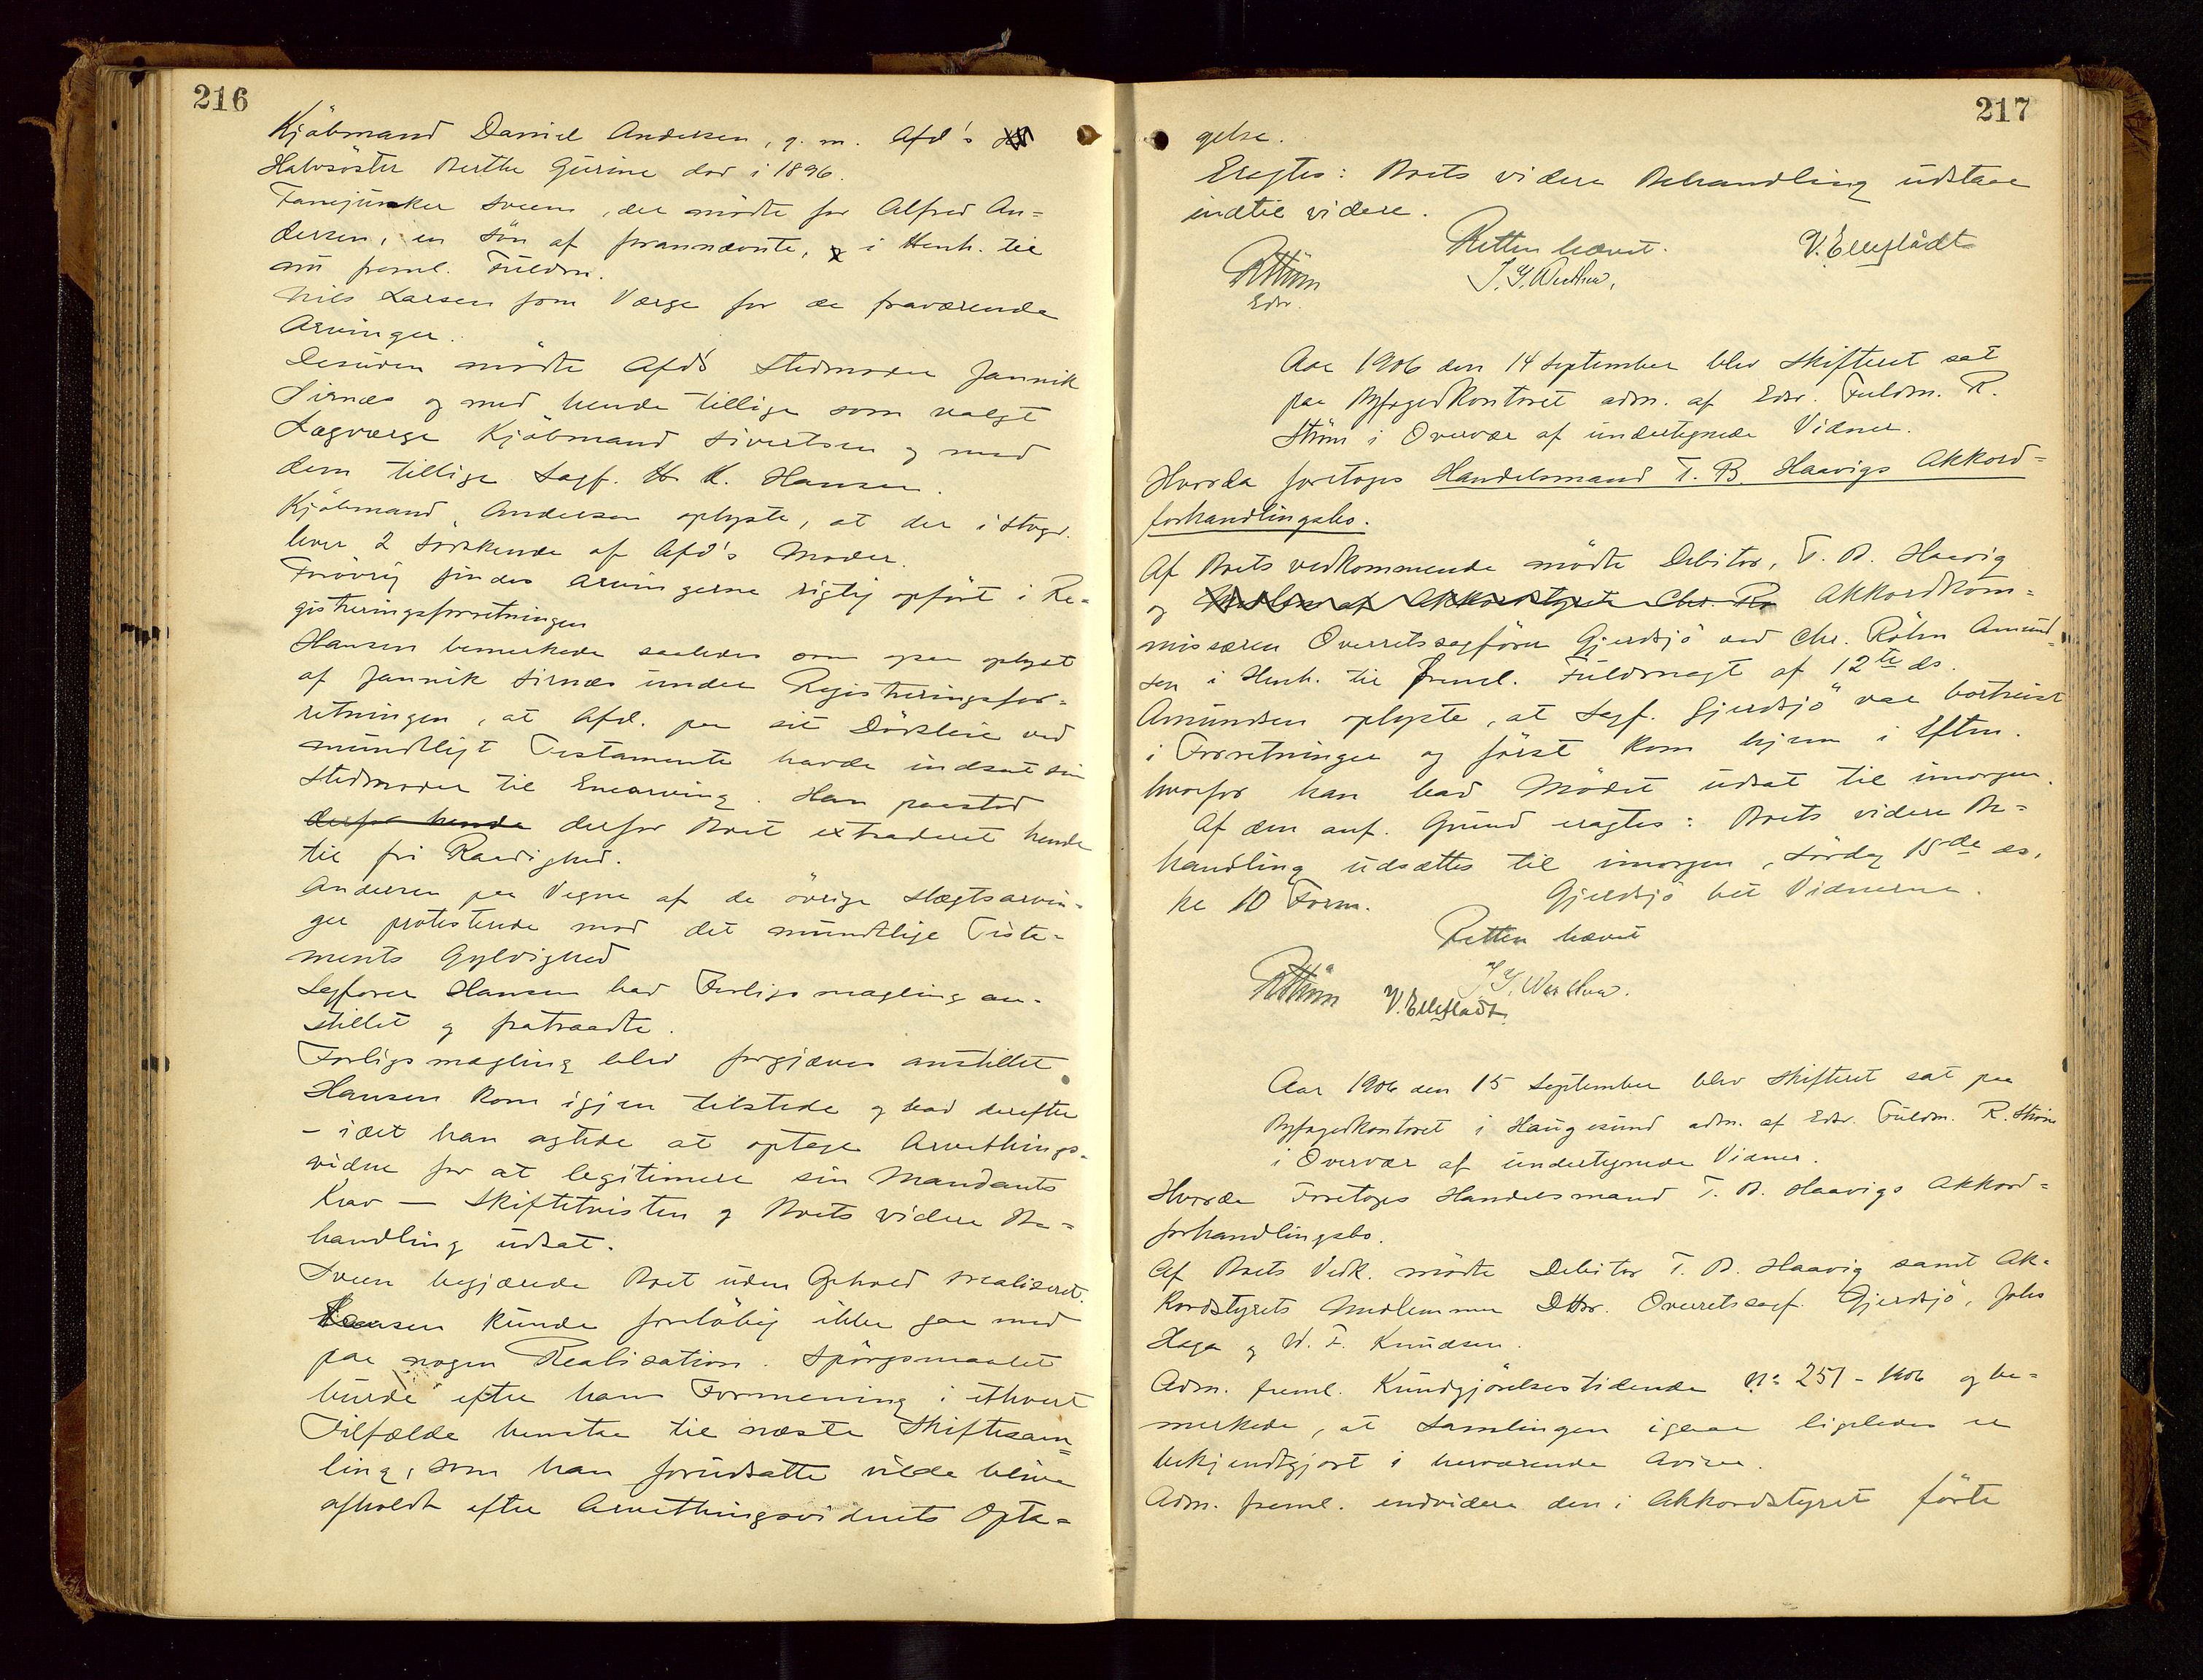 216
Kjøbmand Daniel Andersen, g. m. Afd's
Halvsøster Berthe Gurine død i 1896.
Fanejunker Sveen, der mødte for Alfred An=
dersen, en Søn af forannævnte, i Henh. til
nu freml. Fuldm.
Nils Larsen som Værge for de fraværende
Arvinger.
Desuden mødte Afd's Stedmoder Jannik
Sirnæs og med hende tillige som valgt
Lagværge Kjøbmand Sivertsen og med
dem tillige Sagf. H. K. Hansen.
Kjøbmand Andersen oplyste, at der i Stvgr.
lever 2 Søskende af Afd's Moder.
Forøvrig findes Arvingerne rigtig opført i Re=
gistreringsforretningen
Hansen bemerkede saaledes som ogsaa oplyst
af Jannik Sirnæs under Registreringsfor=
retningen, at Afd. paa sit Dødsleie ved
mundtligt Testamente havde indsat sin
Stedmoder til Enearving. Han paastod
derfor hende derfor Boet extraderet hende
til fri Raadighed.
Andersen paa Vegne af de øvrige Slægtsarvin=
ger protesterede mod det mundtlige Testa=
ments Gyldighed
Sagfører Hansen bad Forligsmægling an=
stillet og fratraadte.
Forligsmægling blev forgjæves anstillet
Hansen kom igjen tilstede og bad derefter
– idet han agtede at optage Arvethings=
vidne for at legitimere sin Mandants
Krav — Skiftetvisten og Boets videre Be=
handling udsat.
Sveen begjærede Boet uden Ophold realiseret.
Hansen kunde foreløbig ikke gaa med
paa nogen Realisation. Spørgsmaalet
burde efter hans Formening i ethvert
Tilfælde henstaa til næste Skiftesam=
ling, som han forudsatte vilde blive
afholdt efter Arvethingsvidnets Opta=
217
gelse.
Eragtes: Boets videre Behandling udstaar
indtil videre.
Retten hævet.
V. Ellefladt
RStrøm
Edsv.
Aar 1906 den 14 September blev Skifteret sat
paa Byfogedkontoret adm. af Edsv. Fuldm. R.
Strøm i Overvær af undertegnede Vidner.
Hvorda foretoges Handelsmand T. B. Haavigs Akkord=
forhandlingsbo.
Af Boets vedkommende mødte Debitor, T. B. Haavig
og Medlem af Akkordstyret Chr. Rø Akkordkom=
missæren Overretssagfører Gjerdsjø ved Chr. Røhn Amund=
sen i Henh. til freml. Fuldmagt af 12te ds.
Amundsen oplyste, at Sagf. Gjerdsjø var bortreist
i Forretninger og først kom hjem i Efterm.
hvorfor han bad Mødet udsat til imorgen.
Af den anf. Grund eragtes: Boets videre Be=
handling udsættes til imorgen, Lørdag 15de ds.
kl 10 Form. Gjerdsjø bet Vidnerne.
Retten hævet
RStrøm V. Ellefladt.
Aar 1906 den 15 September blev Skifteret sat paa
Byfogedkontoret i Haugesund adm. af Edsv. Fuldm. R. Strøm
i Overvær af undertegnede Vidner.
Hvorda Foretoges Handelsmand T. B. Haavigs Akkord=
forhandlingsbo.
Af Boets Vedk. mødte Debitor T. B. Haavig samt Ak=
kordstyrets Medlemmer DHrr. Overretssagf. Gjerdsjø, Johs
Haga og W. F. Knudsen.
Adm. freml. Kundgjørelsestidende No 251 - 1906 og be=
merkede, at Samlingen igaar ligeledes er
bekjendtgjort i herværende Aviser.
Adm. freml. endvidere den i Akkordstyret førte